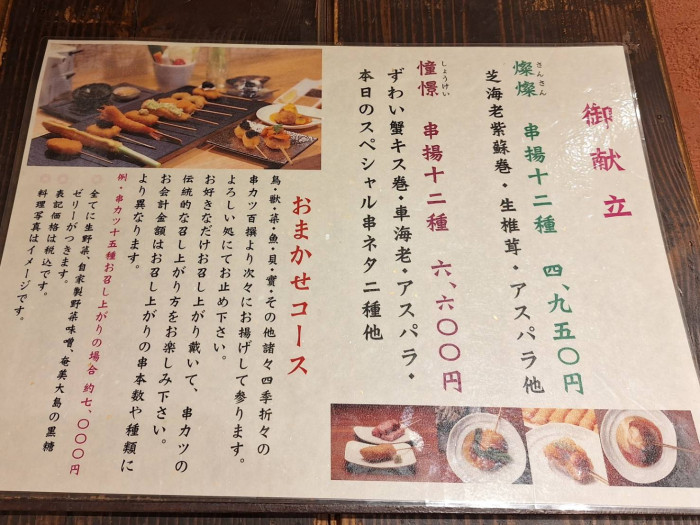 御献立
さんさん
燦燦 串揚十二種 四、九五〇円
芝海老紫蘇巻・生椎茸・アスパラ他
しょうけい
憧憬 串揚十二種 六、六〇〇円
ずわい蟹キス巻・車海老・アスパラ・
本日のスペシャル串ネタ二種他
おまかせコース
鳥・獣・菜・魚・貝・實・その他諸々四季折々の
串カツ百撰より次々にお揚げして参ります。
よろしい処にてお止め下さい。
お好きなだけお召し上がり戴いて、串カツの
伝統的な召し上がり方をお楽しみ下さい。
お会計金額はお召し上がりの串本数や種類に
より異なります。
例・串カツ十五種お召し上がりの場合 約七、〇〇〇円
全てに生野菜、自家製野菜味噌、奄美大島の黒糖
ゼリーがつきます。
表記価格は税込です。
料理写真はイメージです。